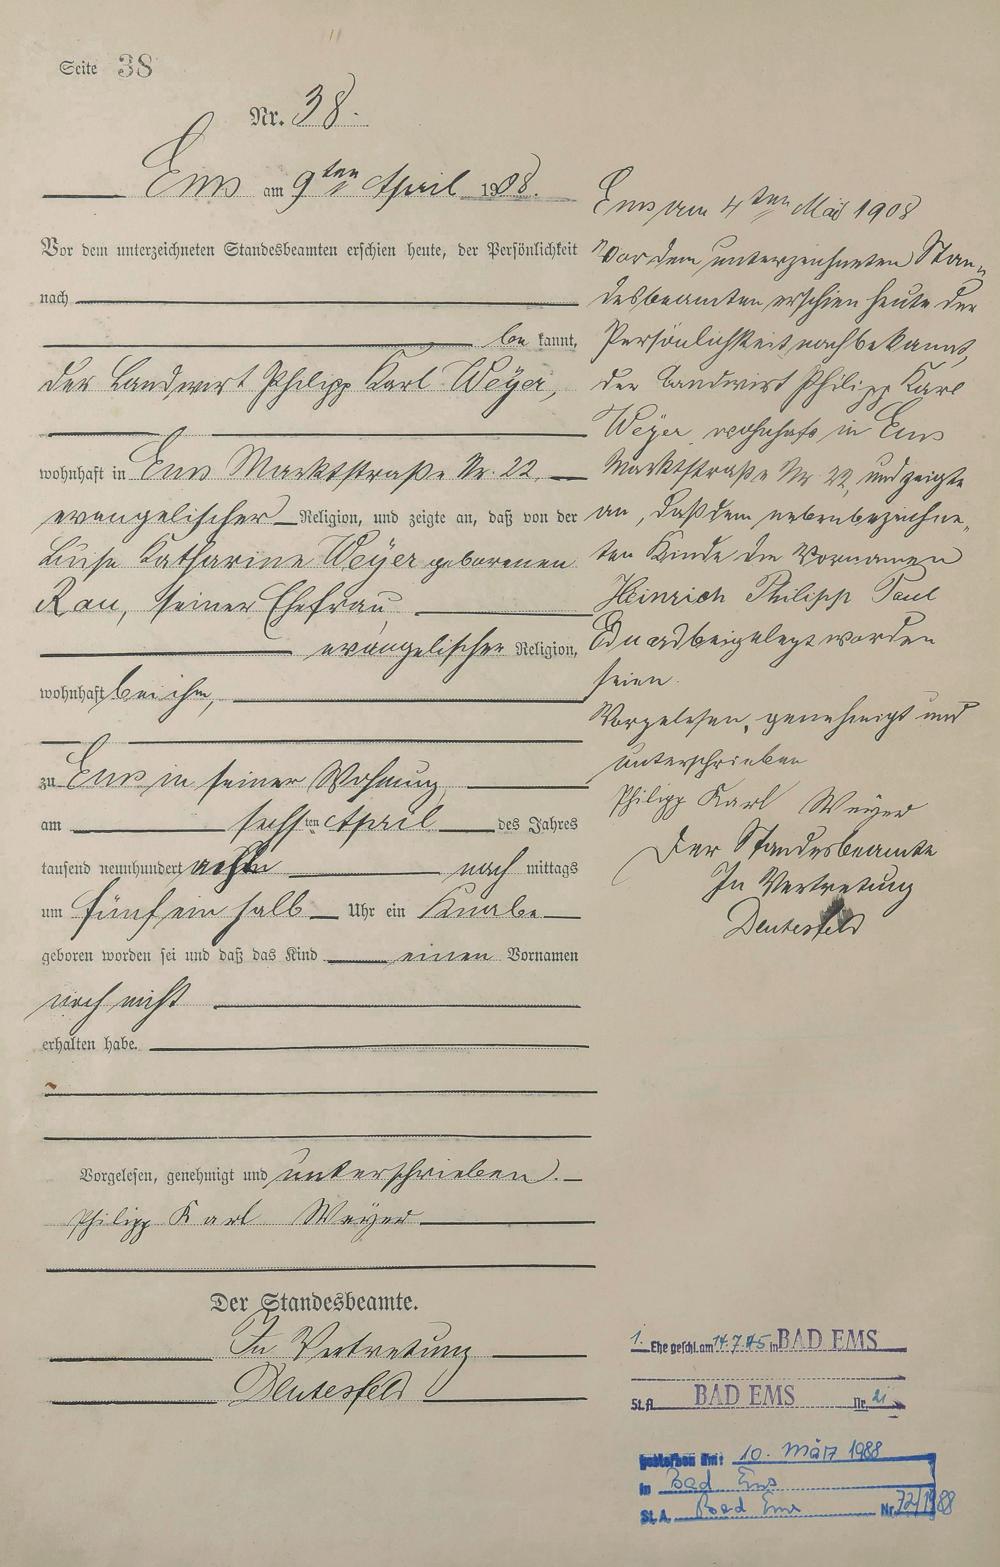 Seite 38
Nr. 38.
Ems am 9ten April 1908.
Vor dem unterzeichneten Standesbeamten erschien heute, der Persönlichkeit
nach
bekannt,
der Landwirt Philipp Karl Weyer,
wohnhaft in Ems Marktstraße Nr. 22,
evangelischer Religion, und zeigte an, daß von der
Luise Katharine Weyer geborenen
Rau, seiner Ehefrau
evangelischer Religion,
wohnhaft bei ihm,
zu Ems in seiner Wohnung
am sechsten April des Jahres
tausend neunhundert acht nach mittags
um fünf ein halb Uhr ein Knabe
geboren worden sei und daß das Kind einen Vornamen
noch nicht
erhalten habe.
Vorgelesen, genehmigt und unterschrieben.
Philipp Karl Weyer
Der Standesbeamte.
In Vertretung
Ems am 4ten Mai 1908
Vor dem unterzeichneten Stan-
desbeamten erschien heute der
Persönlichkeit nach bekannt,
der Landwirt Philipp Karl
Weyer wohnhaft in Ems
Marktstraße Nr 22, und zeigte
an, daß dem nebenbezeichne-
ten Kinde die Vornamen
Heinrich Philipp Paul
Eduard beigelegt worden
seien.
Vorgelesen, genehmigt und
unterschrieben
Philipp Karl Weyer
Der Standesbeamte
In Vertretung
1. Ehe geschl. am 14.7.45 in BAD EMS
St.A. BAD EMS Nr. 21
gestorben am: 10. März 1988
in Bad Ems
St. A. Bad Ems Nr. 72/1988